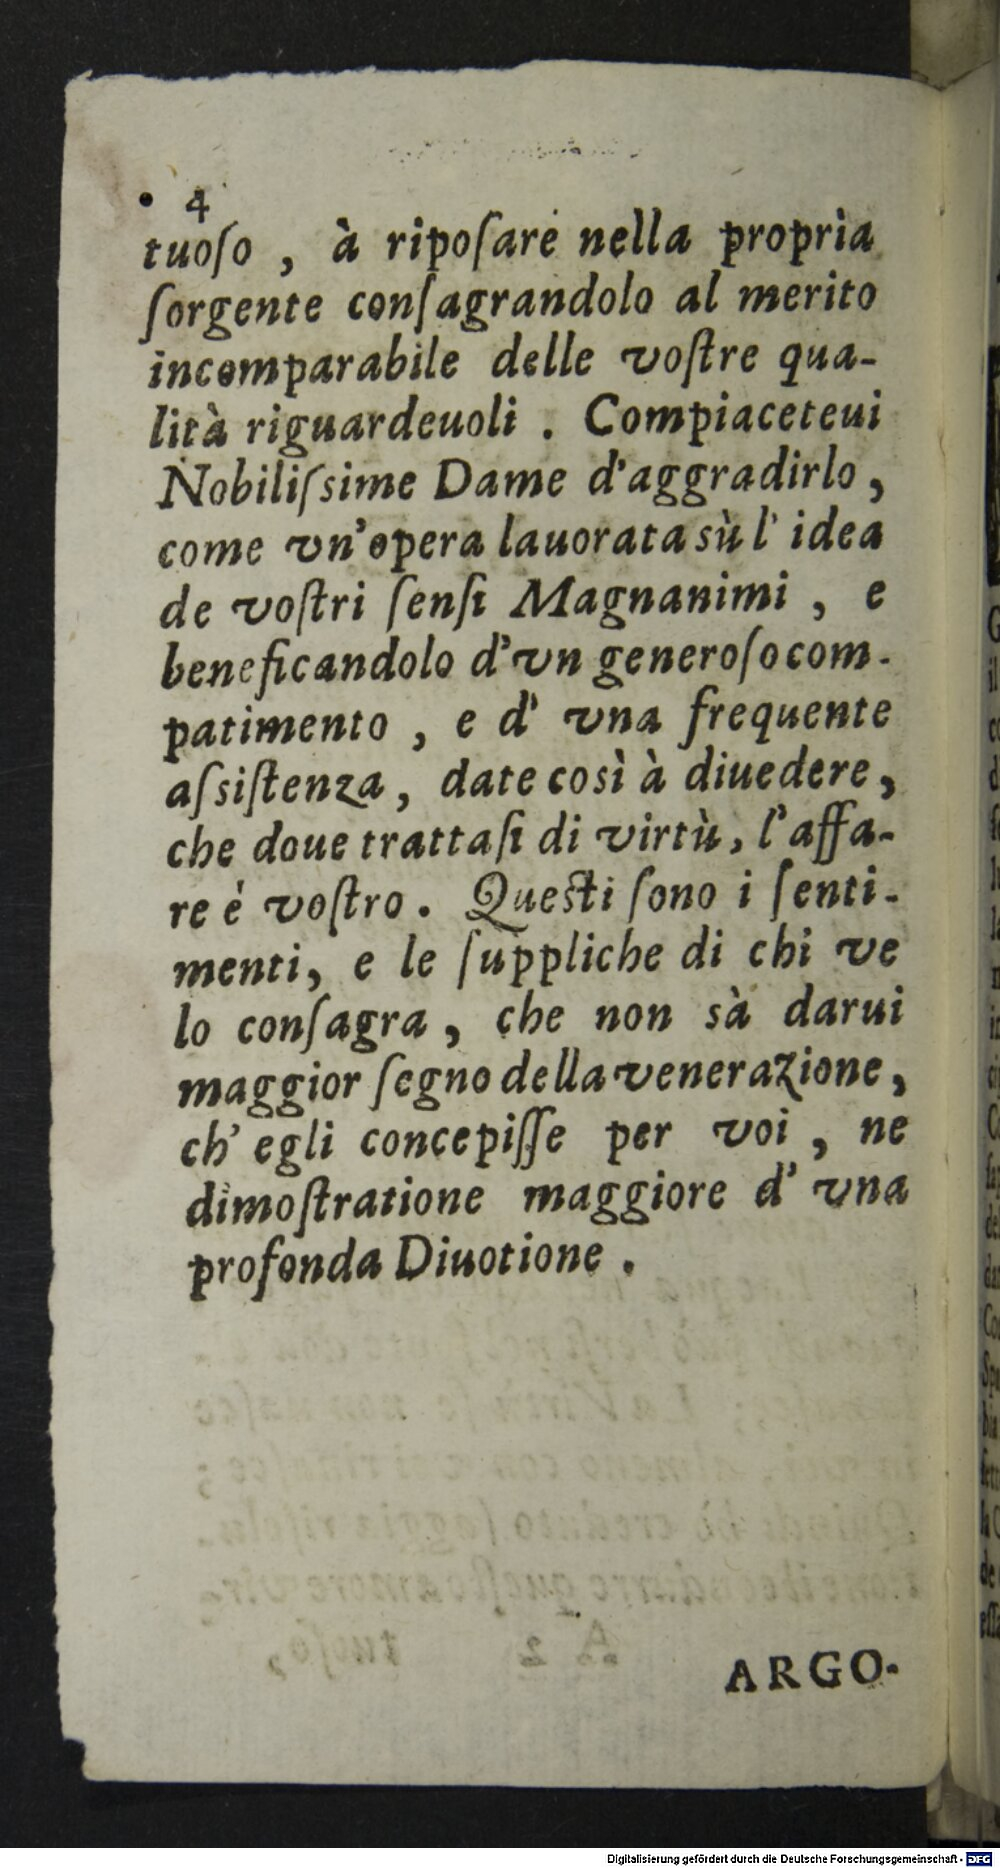 4
tuoſo , à ripoſare nella propria
ſorgente conſagrandolo al merito
incomparabile delle voſtre qua-
lità riguardeuoli . Compiaceteui
Nobiliſsime Dame d'aggradirlo ,
come vn'opera lauorata sù l' idea
de voſtri ſenſi Magnanimi , e
beneficandolo d'vn generoſo com-
patimento , e d' vna frequente
aſsiſtenza , date così à diuedere ,
che doue trattaſi di virtù , l'affa-
re è voſtro . Queſti ſono i ſenti-
menti , e le ſuppliche di chi ve
lo conſagra , che non sà darui
maggior ſegno della venerazione ,
ch' egli concepiſſe per voi , ne
dimoſtratione maggiore d' vna
profonda Diuotione .
ARGO-
Digitalisierung gefördert durch die Deutsche Forschungsgemeinschaft - DFG